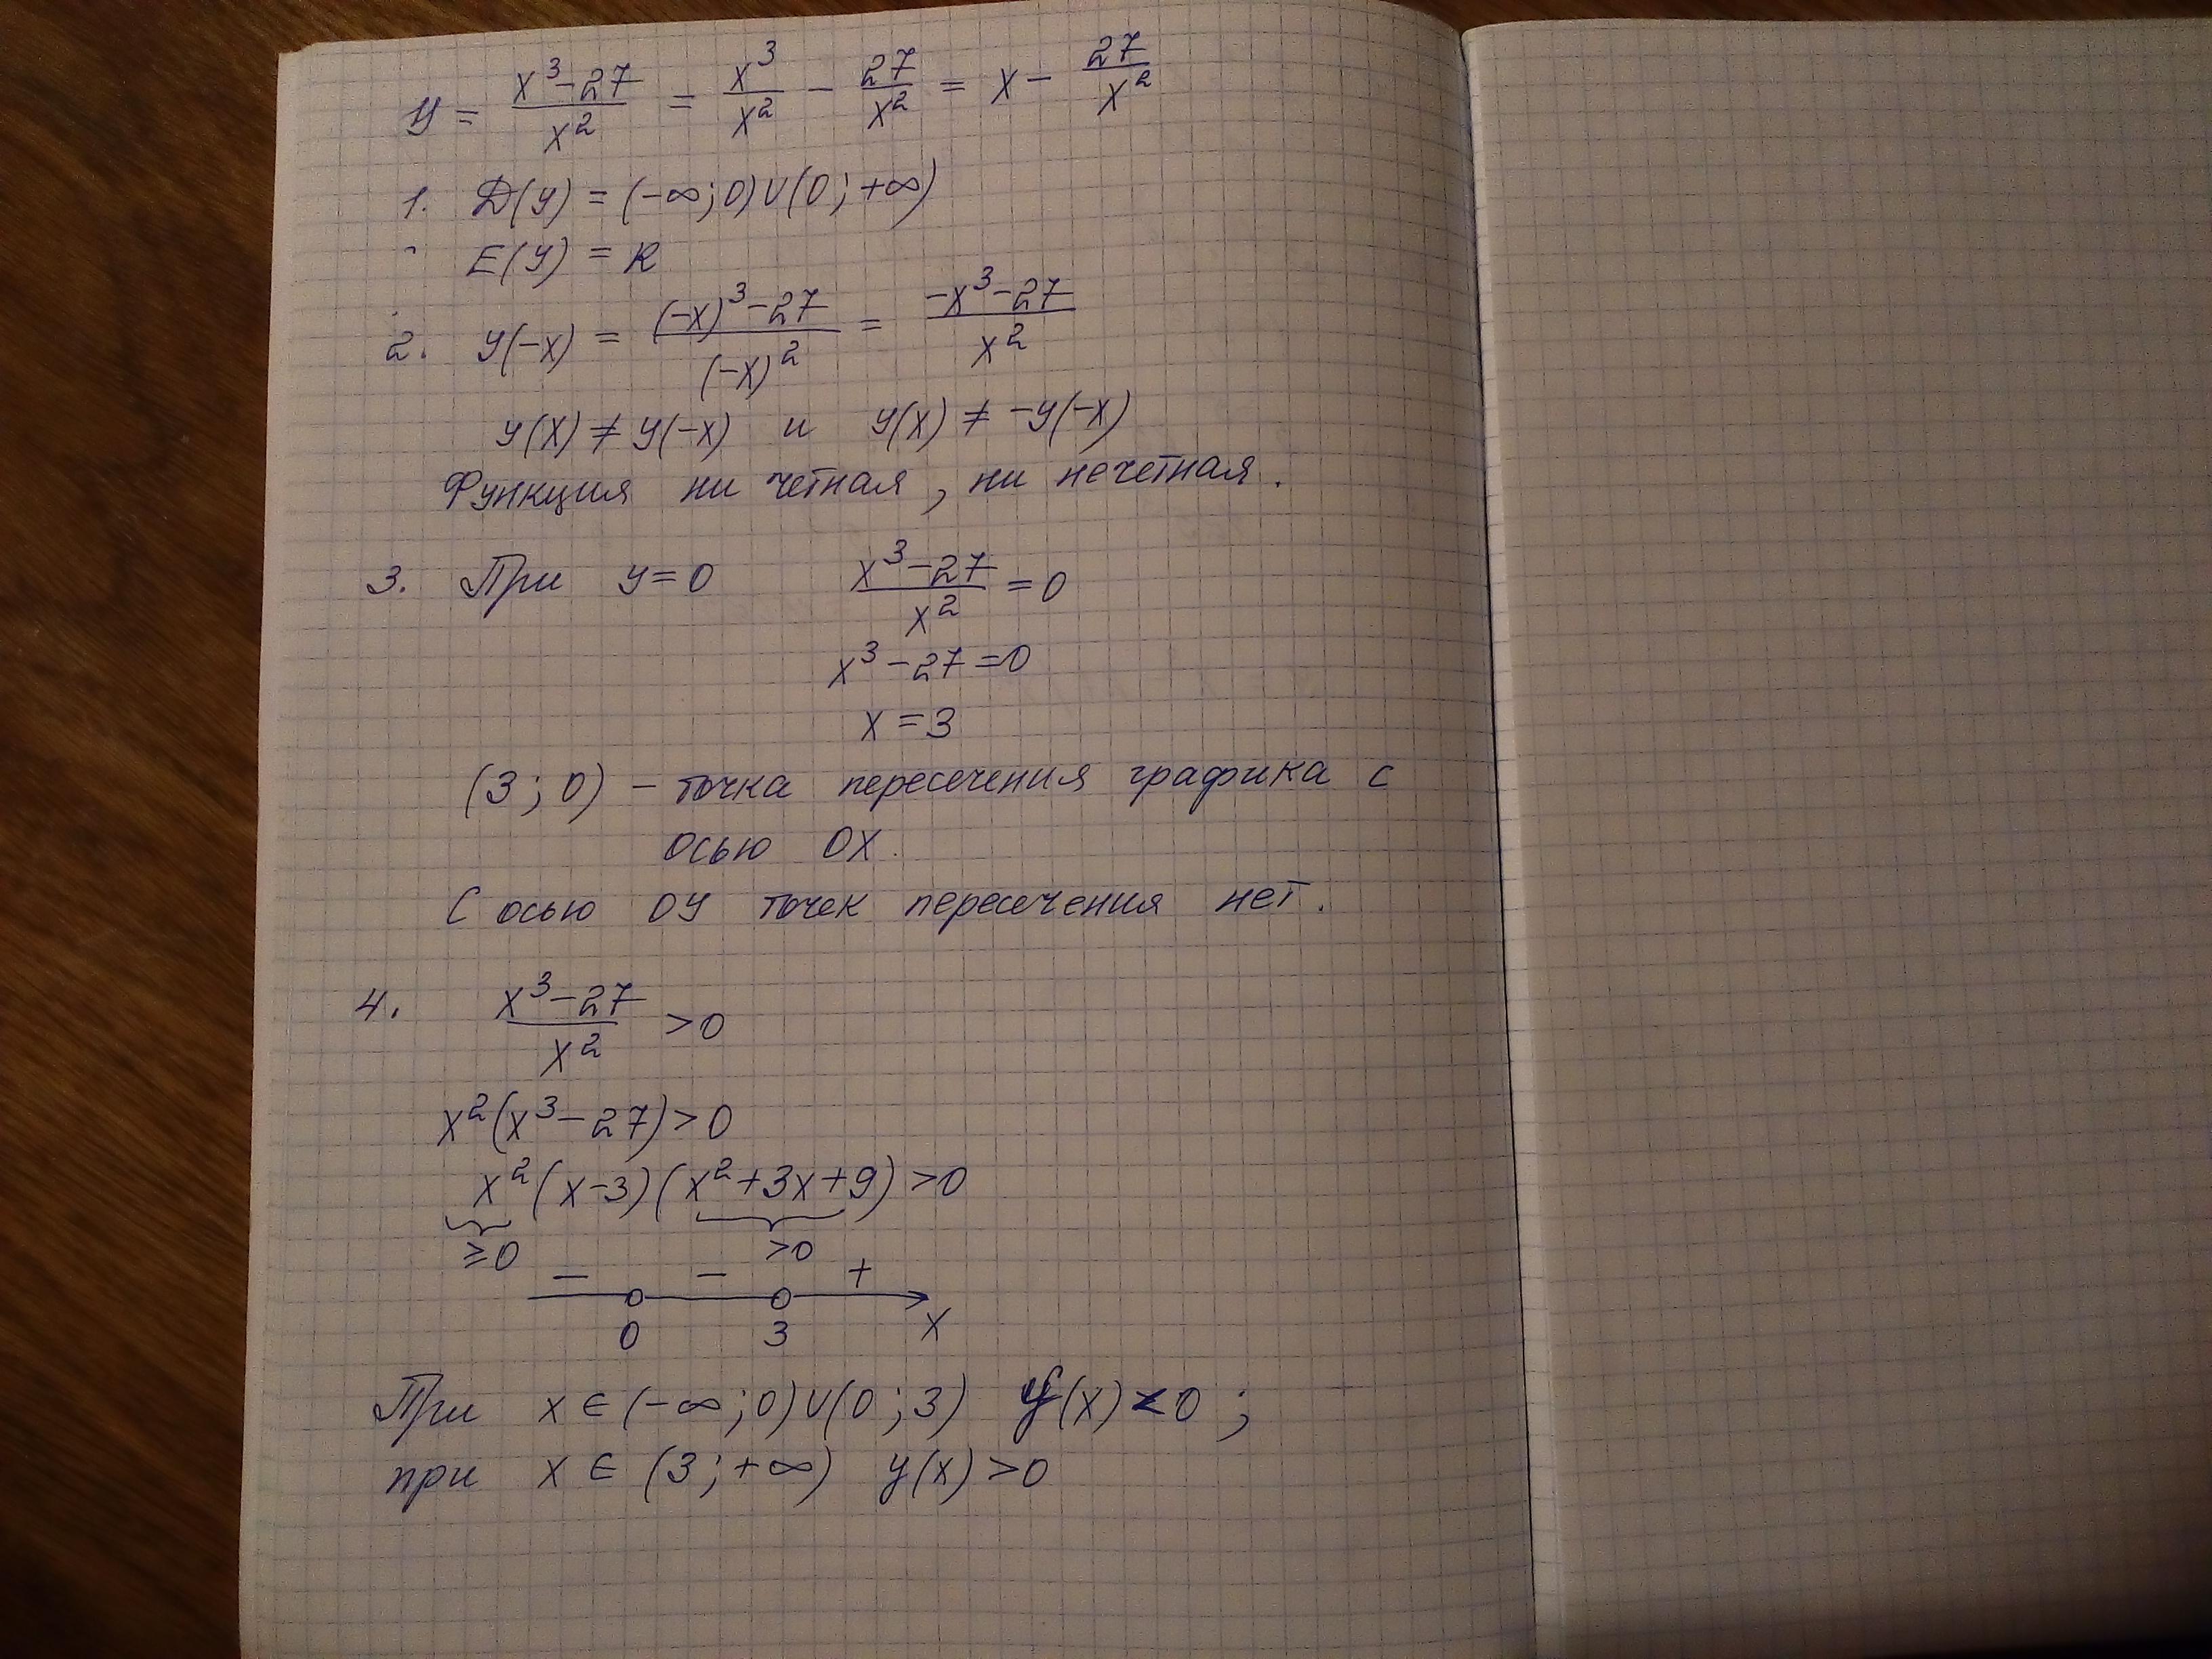 y = (x³-27)/x² = x³/x² - 27/x² = x - 27/x²
1. D(y) = (-∞; 0) ∪ (0; +∞)
E(y) = R
2. y(-x) = ((-x)³-27)/(-x)² = (-x³-27)/x²
y(x) ≠ y(-x) и y(x) ≠ -y(-x)
Функция ни четная, ни нечетная.
3. При y=0 (x³-27)/x² = 0
x³-27=0
x=3
(3; 0) - точка пересечения графика с
осью OX.
С осью OY точек пересечения нет.
4. (x³-27)/x² >0
x²(x³-27)>0
x²(x-3)(x²+3x+9)>0
≥0 >0
- - +
0 3 x
При x ∈ (-∞; 0) ∪ (0; 3) y(x) < 0;
при x ∈ (3; +∞) y(x) > 0